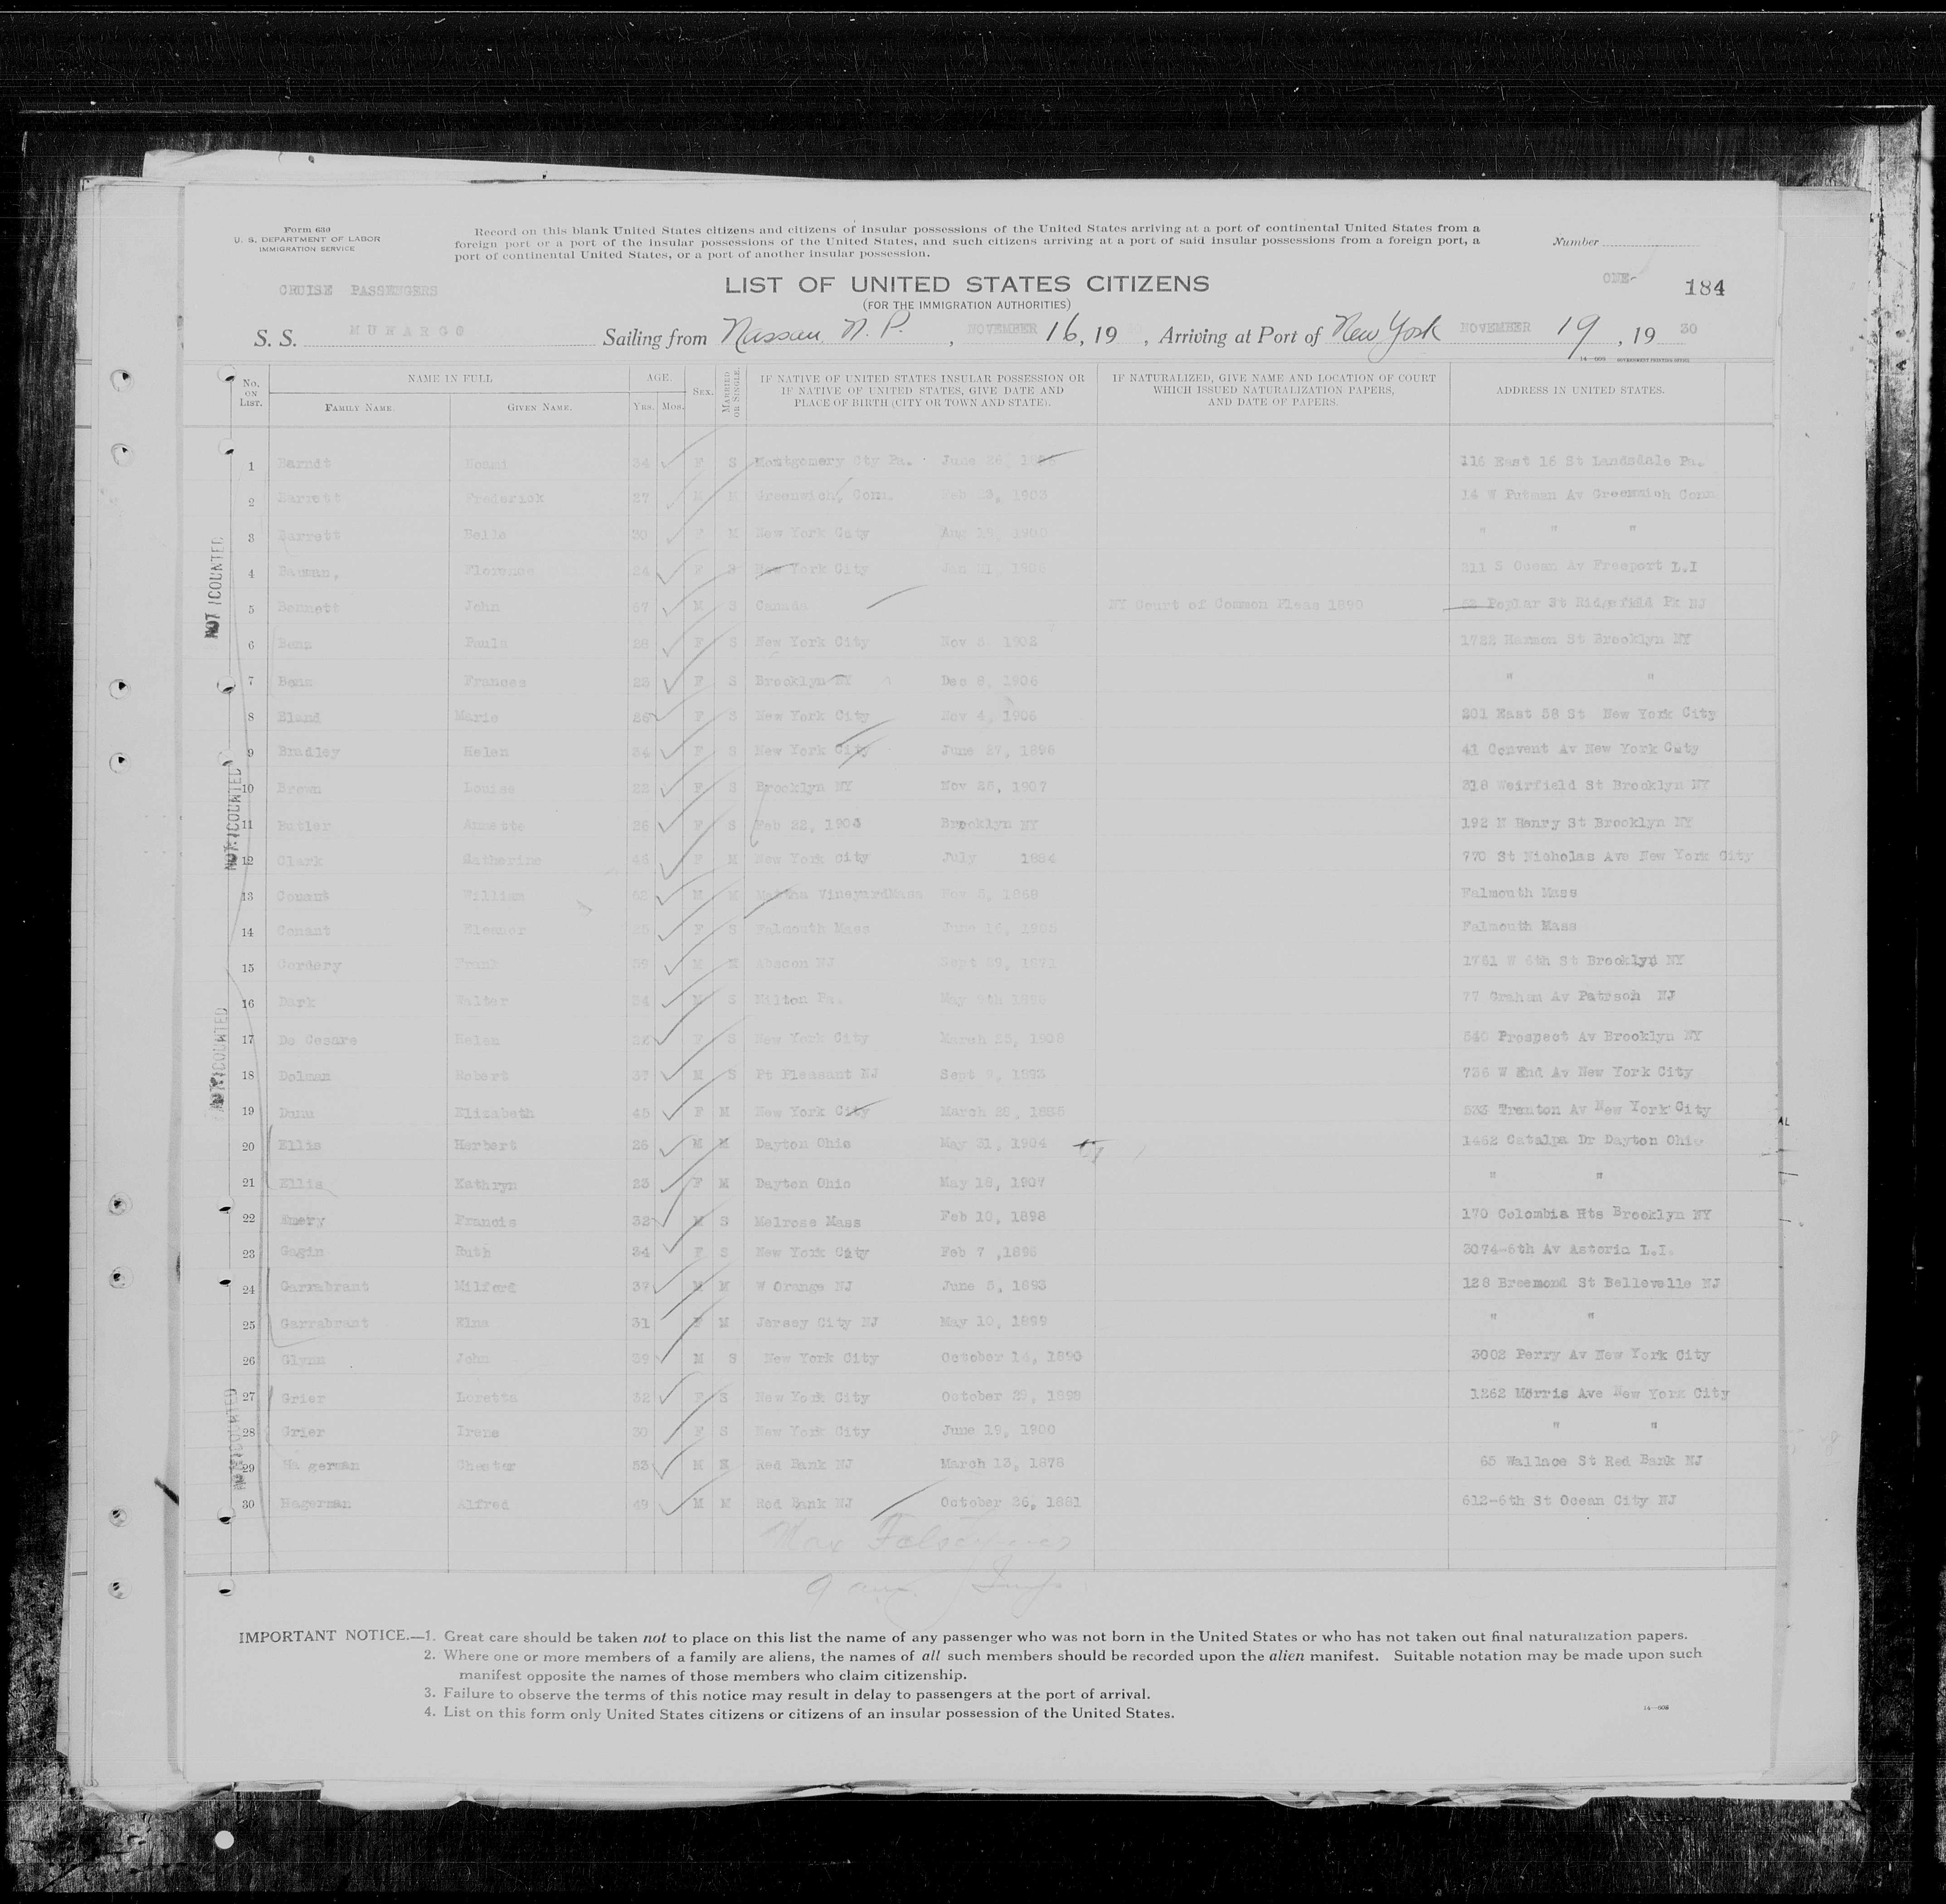 Form 630
U. S. DEPARTMENT OF LABOR
IMMIGRATION SERVICE
Record on this blank United States citizens and citizens of insular possessions of the United States arriving at a port of continental United States from a
foreign port or a port of the insular possessions of the United States, and such citizens arriving at a port of said insular possessions from a foreign port, a
port of continental United States, or a port of another insular possession.
Number
CRUISE PASSENGERS
LIST OF UNITED STATES CITIZENS
ONE-
184
(FOR THE IMMIGRATION AUTHORITIES)
S. S. MUNARGO Sailing from Nassau N. P., NOVEMBER 16, 19 , Arriving at Port of New York NOVEMBER 19, 19 30
No. ON LIST. NAME IN FULL AGE. SEX. MARRIED OR SINGLE. IF NATIVE OF UNITED STATES INSULAR POSSESSION OR IF NATIVE OF UNITED STATES, GIVE DATE AND PLACE OF BIRTH (CITY OR TOWN AND STATE). IF NATURALIZED, GIVE NAME AND LOCATION OF COURT WHICH ISSUED NATURALIZATION PAPERS, AND DATE OF PAPERS. ADDRESS IN UNITED STATES.
FAMILY NAME. GIVEN NAME. YRS. MOS.
1 Barndt 34 F S Montgomery Cty Pa. June 26, 116 East 16 St Landsdale Pa.
2 Barrett Frederick 27 M M Greenwich, Conn. Feb 1903 14 W Putman Av Greenwich Conn
3 Barrett Belle 30 F M New York City Aug 1900 " " "
4 Bauman, Florence 24 F S New York City Jan 1906 211 S Ocean Av Freeport L.I
5 Bennett John 67 M S Canada NY Court of Common Pleas 1890 Poplar St Ridgefield Pk NJ
6 Benz Paula 28 F S New York City Nov 5 1902 1722 Harmon St Brooklyn NY
7 Benz Frances 23 F S Brooklyn NY Dec 8, 1906 " "
8 Bland Marie 26 F S New York City Nov 4, 1906 201 East 58 St New York City
9 Bradley Helen 34 F S New York City June 27, 1896 41 Convent Av New York City
10 Brown Louise 22 F S Brooklyn NY Nov 25, 1907 318 Weirfield St Brooklyn NY
11 Butler Annette 26 F S Feb 22, 1904 Brooklyn NY 192 N Henry St Brooklyn NY
12 Clark Catherine 46 F M New York City July 1884 770 St Nicholas Ave New York City
13 Conant William 62 M M Martha VineyardMass Nov 1868 Falmouth Mass
14 Conant Eleanor 25 F S Falmouth Mass June 1905 Falmouth Mass
15 Cordery Frank 59 M M Abscon NJ Sept 29, 1871 1761 W 6th St Brooklyn NY
16 Dark Walter 34 M S Milton Pa. May 9th 1896 77 Graham Av Patrson NJ
17 De Cesare Helen 22 F S New York City March 25, 1908 540 Prospect Av Brooklyn NY
18 Dolman Robert 37 M S Pt Pleasant NJ Sept 1893 736 W End Av New York City
19 Dunn Elizabeth 45 F M New York City March 28, 1885 533 Trenton Av New York City
20 Ellis Herbert 26 M M Dayton Ohio May 31, 1904 1462 Catalpa Dr Dayton Ohio
21 Ellis Kathryn 23 F M Dayton Ohio May 18, 1907 " "
22 Emery Francis 32 M S Melrose Mass Feb 10, 1898 170 Colombia Hts Brooklyn NY
23 Gagin Ruth 34 F S New York City Feb 7 ,1896 3074-6th Av Astoria L.I.
24 Garrabrant Milford 37 M M W Orange NJ June 5, 1893 128 Breemond St Bellevelle NJ
25 Garrabrant Elna 31 F M Jersey City NJ May 10, 1899 " "
26 Glynn John 39 M S New York City October 14, 1890 3002 Perry Av New York City
27 Grier Loretta 32 F S New York City October 29, 1898 1262 Morris Ave New York City
28 Grier Irene 30 F S New York City June 19, 1900 " "
29 Hagerman Chester 53 M M Red Bank NJ March 13, 1878 65 Wallace St Red Bank NJ
30 Hagerman Alfred 49 M M Red Bank NJ October 26, 1881 612-6th St Ocean City NJ
IMPORTANT NOTICE.—1. Great care should be taken not to place on this list the name of any passenger who was not born in the United States or who has not taken out final naturalization papers.
2. Where one or more members of a family are aliens, the names of all such members should be recorded upon the alien manifest. Suitable notation may be made upon such
manifest opposite the names of those members who claim citizenship.
3. Failure to observe the terms of this notice may result in delay to passengers at the port of arrival.
4. List on this form only United States citizens or citizens of an insular possession of the United States.